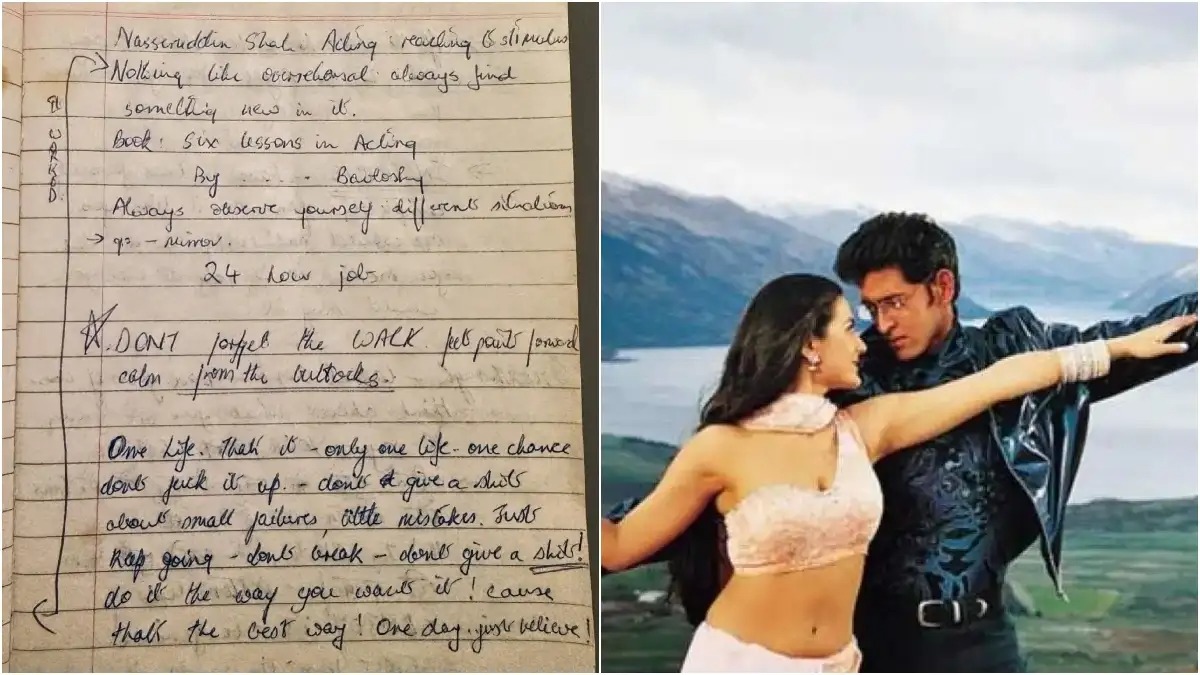 Nasseruddin Shah: Acting: reacting to stimulus
Nothing like overrehersal. always find
something new in it.
Book: Six lessons in Acting
By . . . . Bavtosky
Always observe yourself different situations
→ - mirror.
24 hour job.
IT WORKED.
DONT forget the WALK. feet point forward
calm from the buttocks.
One Life. That it - only one life. one chance
dont fuck it up. - dont give a shit
about small failures, little mistakes. Just
keep going - dont break - dont give a shit!
do it the way you want it! cause
that the best way! One day. just believe!